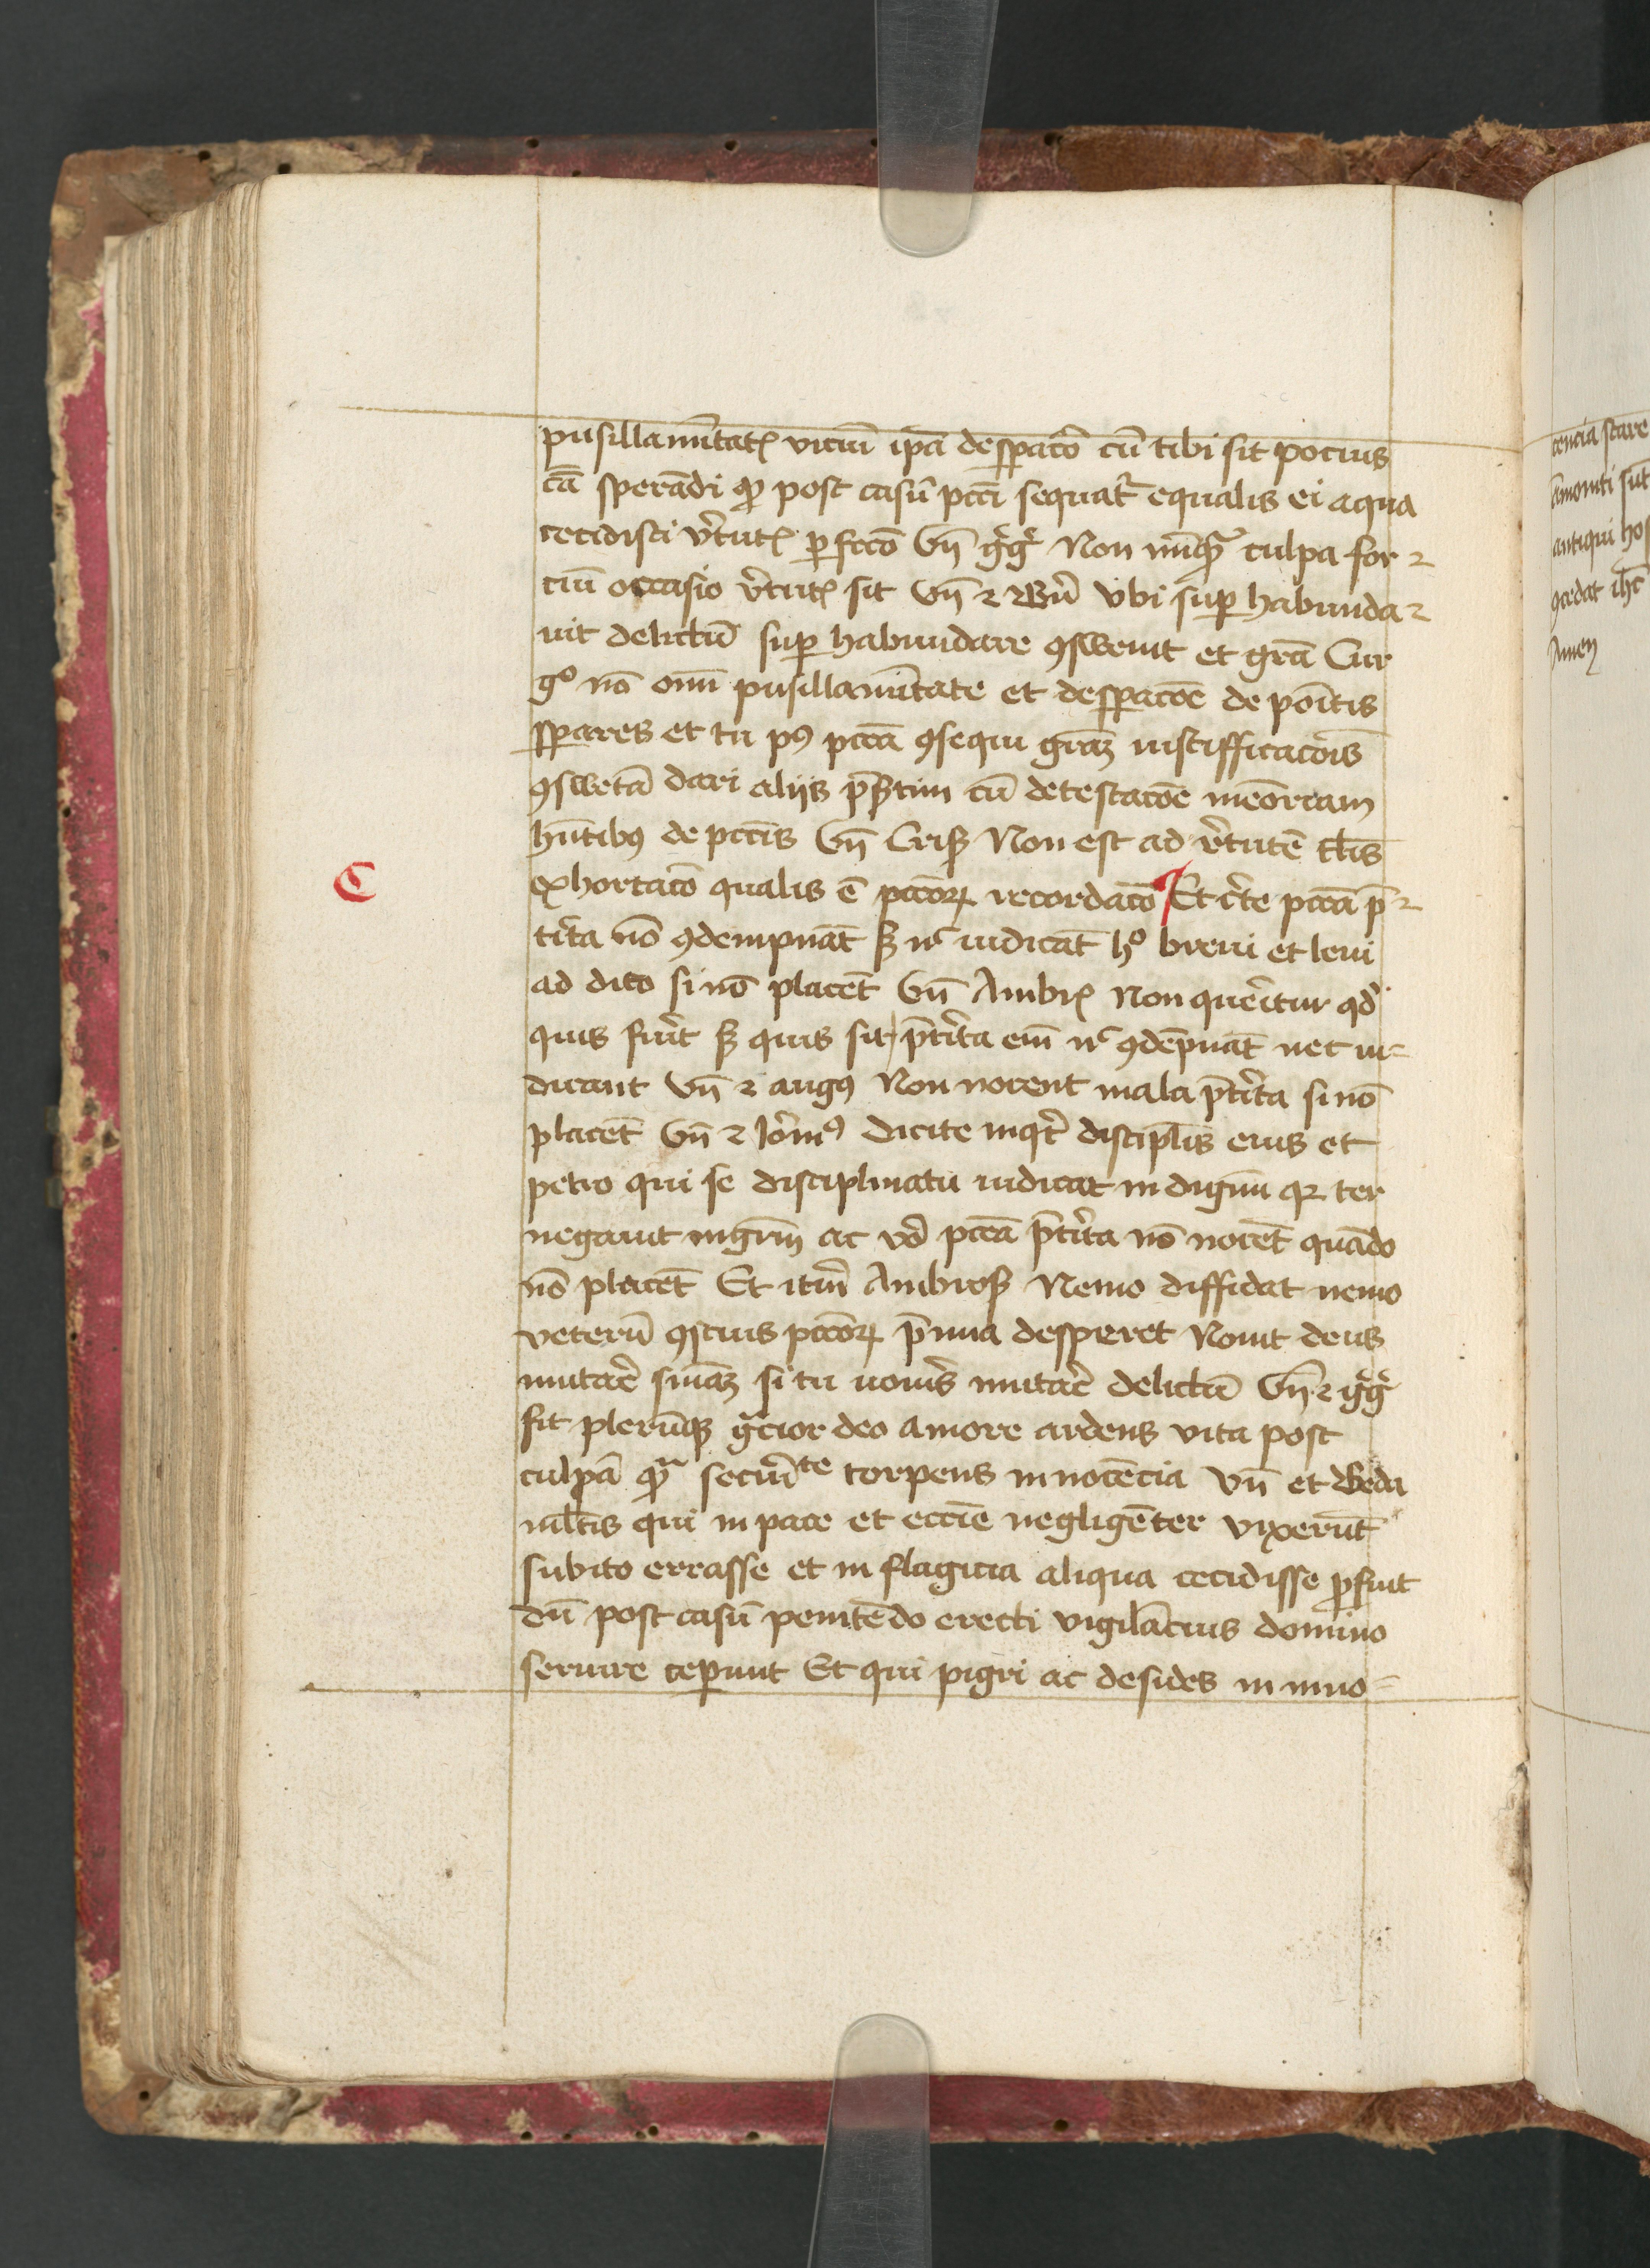 pusillamītatꝭ viciū ip̄a desꝑacō cū tibi sit pocius
cā sperādi ꝙ post casū pccī sequat᷑ equalis ei aqua
cecidisti v̓tutꝭ ꝑfccō Vn̄ g̓g̓ Non nūqᷓ culpa for
ciū occasio v̓tutꝭ sit Vn̄ ⁊ Vbi suꝑ habunda
uit delictū suꝑ habundare ꝯsweuit et gr̄a Cur
gᵒ nō om̄i pusillamītate et desꝑacōe de poītis
sꝑares et tu pꝰ pccā ꝯsequi gr̄aꝫ iustifficacōis
ꝯswetā dari aliis p̄sꝭtim cū detestacōe meōriam
hn̄tibꝰ de pccīs Vn̄ Crisꝭ Non est ad v̓tutē tl̄is
exhortacō qualis ē pccōꝝ recordacō Et c̓te pccā p̄
tīta nō ꝯdempnāt sꝫ nᶜ iudicāt hᵒ breui et leui
ad dito si nō placēt Vn̄ Ambrꝭ Non querit̄ur qd̓
quis fuīt sꝫ quis sit p̄tīta em̄ nᶜ ꝯdēpnāt nec iu
dicant Vn̄ ⁊ augꝰ Non nocent mala p̄tīta si nō
placēt Vn̄ ⁊ Io̓mꝰ dicite inqt̓ discipl̄is eius et
petro qui se disciplinatu iudicat indignū qꝛ ter
negauit mgr̄m ac pccā p̄tīta nō nocēt quādo
nō placēt Et itm̄ Ambrosꝭ Nemo diffidat nemo
veterū ꝯscius pccōꝝ p̄mia desperet Nouit deus
mutar̄ sniaꝫ si tu nou̓is mutar̄ delictū Vn̄ ⁊ g̓g̓
fit plerūqꝫ gᷓcior deo amore ardens vita post
culpā qᷓ secur̄ᵗᵉ torpens innocēcia Vn̄ et Beda
ml̄tis qui in pace et eccīe negligēter vixerūt
subito errasse et in flagicia aliqua cecidisse ꝓfuit
dū post casū penitēdo erecti vigilācius domino
seruire ceperunt Et qui pigri ac desides in inno
cencia stare
āmoniti sūt
antiqui hos
ꝯcedat ih̄c
Amen